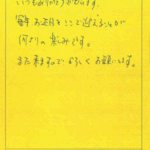 いつもありがとうございます。
毎年お正月をここで迎えるのが
何よりの楽しみです。
また来ますのでよろしくお願いします。